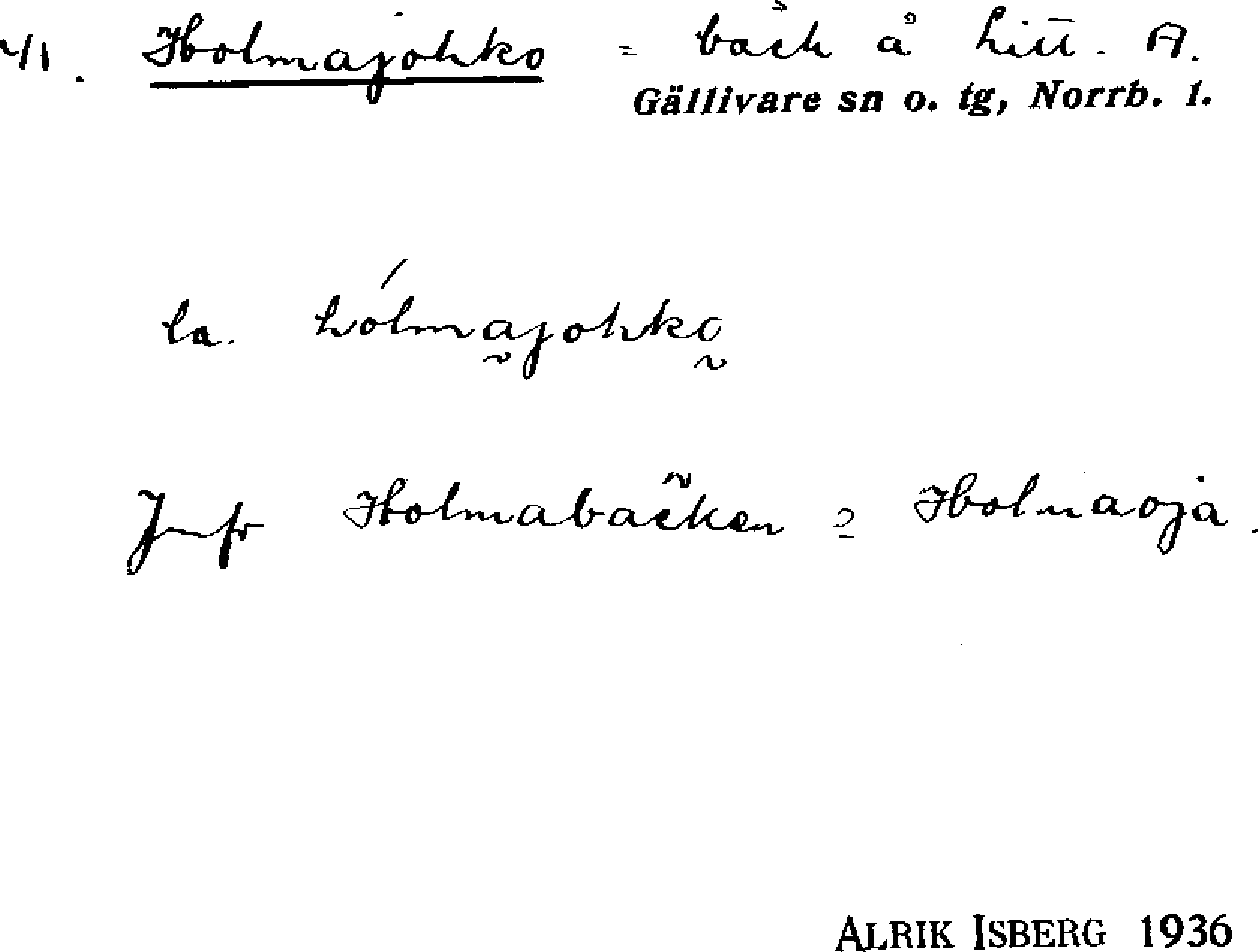 41. Holmajohko = bäck å Litt. A.
Gällivare sn o. tg, Norrb. l.
la. hólma̰johko̰
Jmfr Holmabäcken = Holmaoja.
ALRIK ISBERG 1936